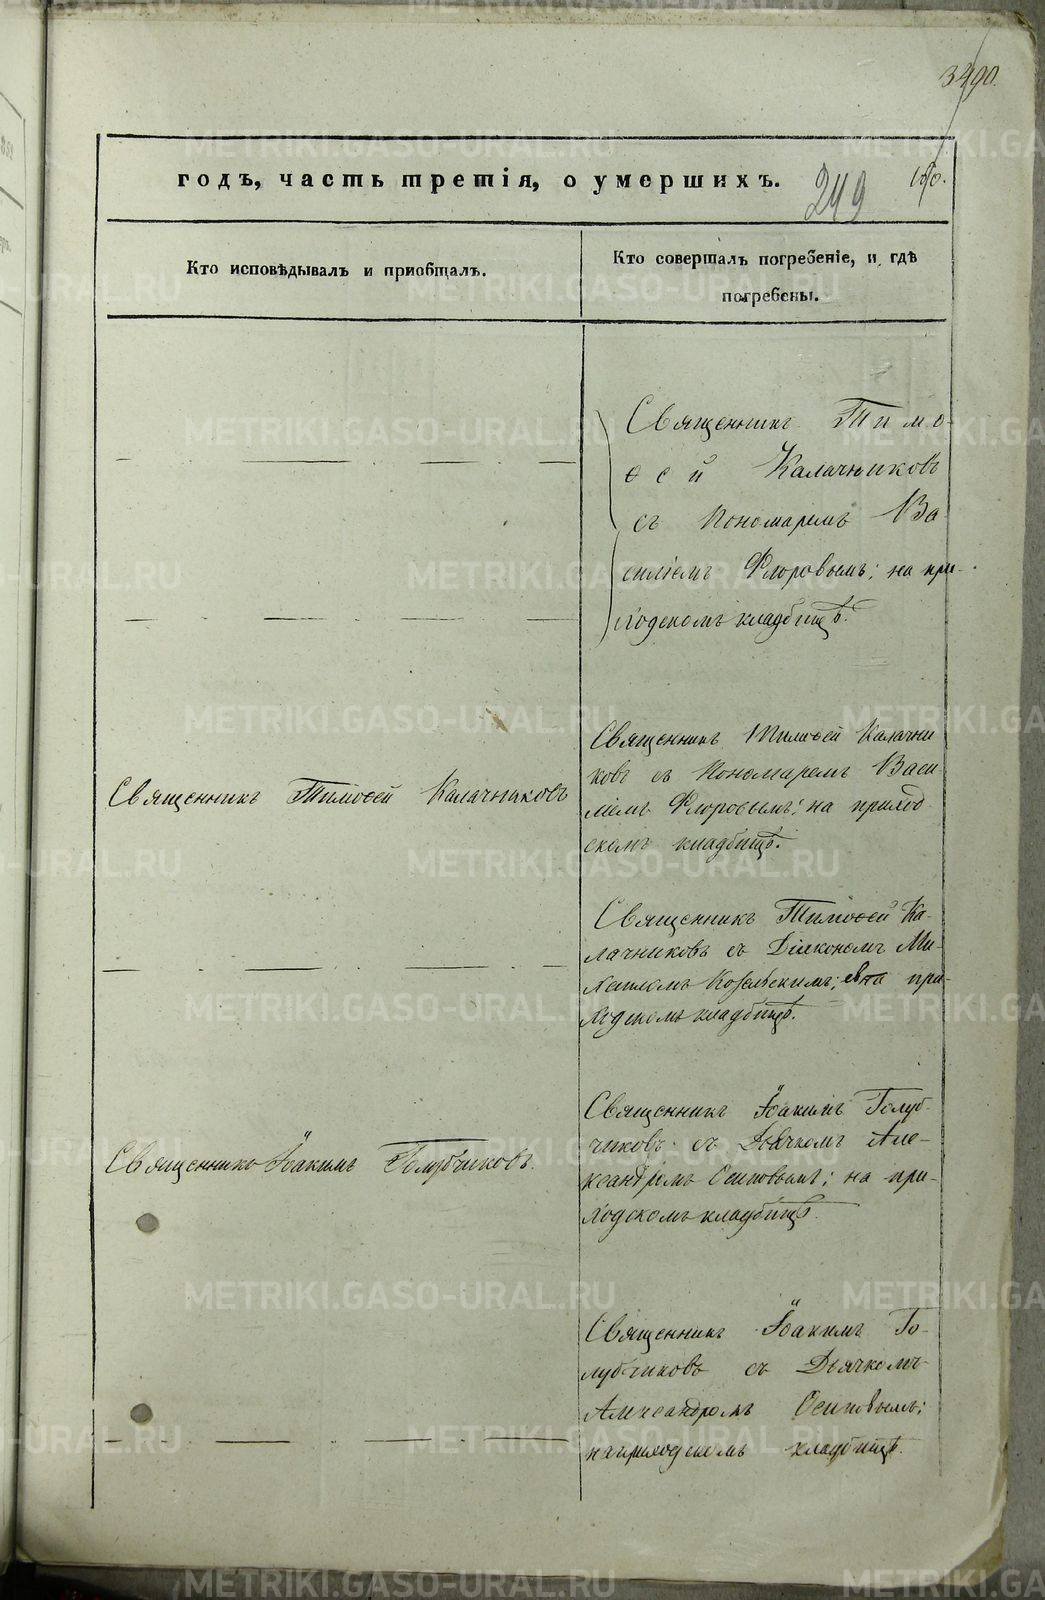 годъ, часть третія, о умершихъ.
249
Кто исповѣдывалъ и пріобщалъ.
Кто совершалъ погребеніе, и гдѣ
погребены.
Священникъ Тимо-
ѳей Калачниковъ
съ Пономаремъ Ва
силіемъ Флоровымъ; на при-
ходскомъ кладбищѣ.
Священникъ Тимоѳей Калачниковъ
Священникъ Тимоѳей Калачни
ковъ съ Пономаремъ Васи
ліемъ Флоровымъ; на приход
скомъ кладбищѣ.
Священникъ Тимоѳей Ка-
лачниковъ съ Діакономъ Ми-
хаиломъ Козельскимъ; на при-
ходскомъ кладбищѣ.
Священникъ Іоакимъ Голубчиковъ.
Священникъ Іоакимъ Голуб-
чиковъ съ Дьячкомъ Але-
ксандромъ Осиповымъ; на при-
ходскомъ кладбищѣ.
Священникъ Іоакимъ Го-
лубчиковъ съ Дьячкомъ
Александромъ Осиповымъ;
на приходскомъ кладбищѣ.
METRIKI.GASO-URAL.RU